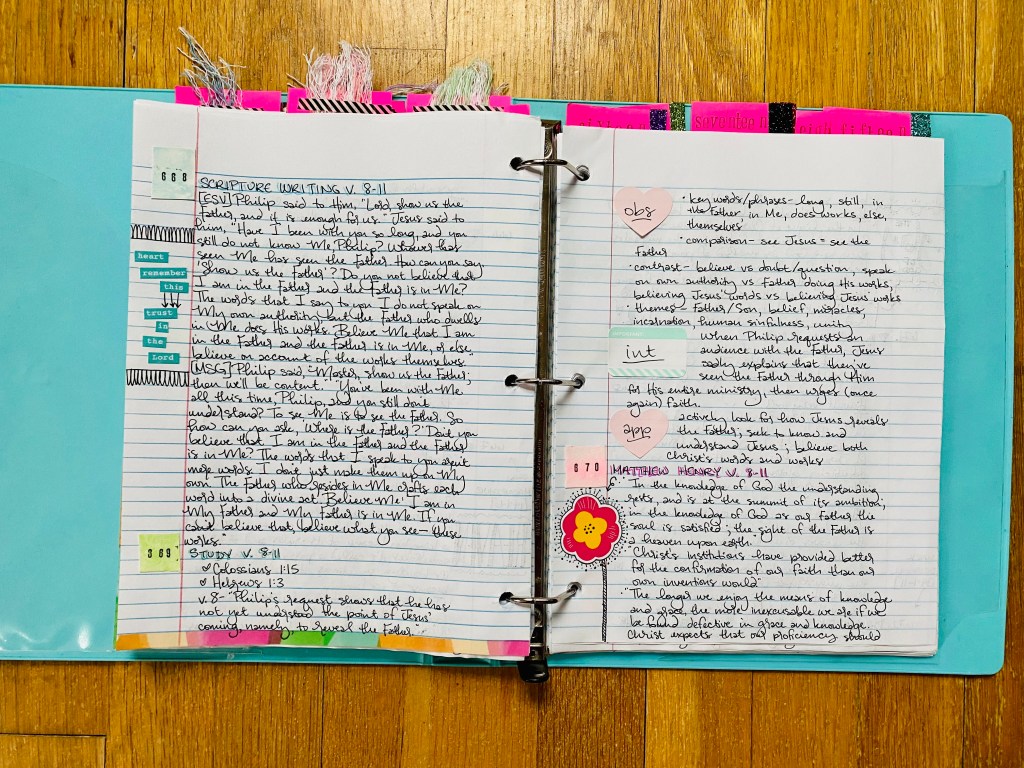 668
SCRIPTURE WRITING V. 8-11
[ESV] Philip said to Him, "Lord, show us the
Father, and it is enough for us." Jesus said to
him, "Have I been with you so long, and you
still do not know Me, Philip? Whoever has
seen Me has seen the Father. How can you say,
'Show us the Father'? Do you not believe that
I am in the Father and the Father is in Me?
The words that I say to you I do not speak on
My own authority, but the Father who dwells
in Me does His works. Believe Me that I am
in the Father and the Father is in Me, or else
believe on account of the works themselves.
[MSG] Philip said, "Master, show us the Father;
then we'll be content." "You've been with Me
all this time, Philip, and you still don't
understand? To see Me is to see the Father. So
how can you ask, 'Where is the Father?' Don't you
believe that I am in the Father and the Father
is in Me? The words that I speak to you aren't
mere words. I don't just make them up on My
own. The Father who resides in Me crafts each
word into a divine act. Believe Me: I am in
My Father and My Father is in Me. If you
can't believe that, believe what you see - these
works."
heart
remember
this
trust
in
the
Lord
369
STUDY V. 8-11
Colossians 1:15
Hebrews 1:3
v. 8 - "Philip's request shows that he has
not yet understood the point of Jesus'
coming, namely, to reveal the Father."
seventeen
fifteen
obs
• key words/phrases - long, still, in
the Father, in Me, does works, else,
themselves
• comparison - see Jesus = see the
Father
• contrast - believe vs doubt/question, speak
on own authority vs Father doing His works,
believing Jesus' words vs believing Jesus' works
themes - Father/Son, belief, miracles,
incarnation, human sinfulness, unity
int
When Philip requests an
audience with the Father, Jesus
sadly explains that they've
seen the Father through Him
for His entire ministry, then urges (once
again) faith.
app
actively look for how Jesus reveals
the Father; seek to know and
understand Jesus; believe both
Christ's words and works
670
MATTHEW HENRY V. 8-11
"In the knowledge of God the understanding
rests, and is at the summit of its ambition;
in the knowledge of God as our Father the
soul is satisfied; the sight of the Father is
a heaven upon earth."
"Christ's institutions have provided better
for the confirmation of our faith than our
own inventions would"
"The longer we enjoy the means of knowledge
and grace, the more inexcusable we are if we
be found defective in grace and knowledge.
Christ expects that our proficiency should